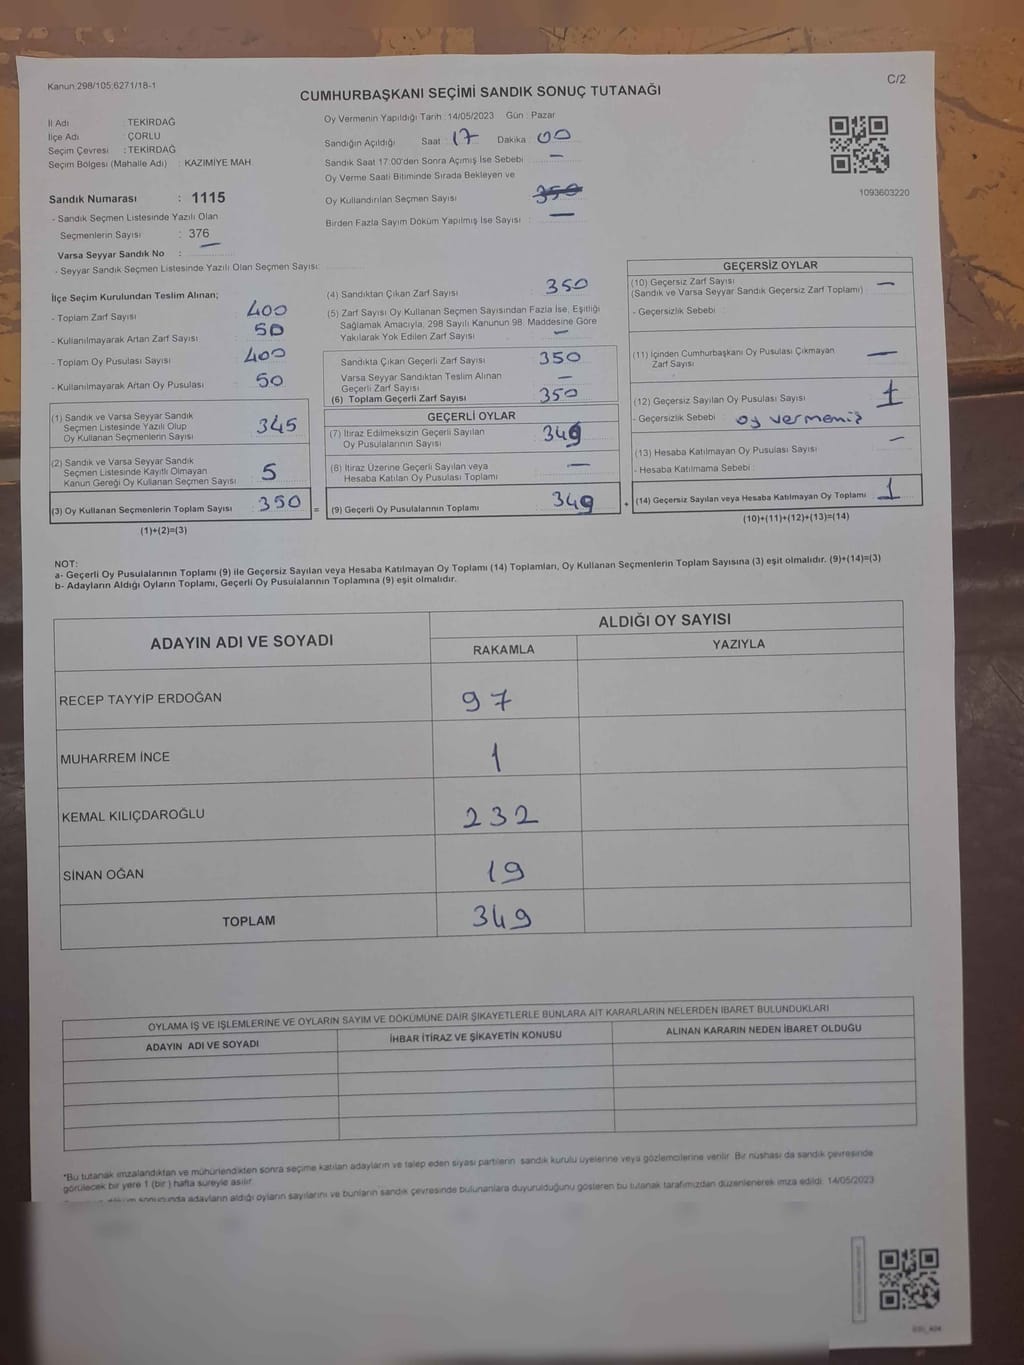 Kanun:298/105;6271/18-1
C/2
CUMHURBAŞKANI SEÇİMİ SANDIK SONUÇ TUTANAĞI
İl Adı : TEKİRDAĞ
İlçe Adı : ÇORLU
Seçim Çevresi : TEKİRDAĞ
Seçim Bölgesi (Mahalle Adı) : KAZIMİYE MAH.
Sandık Numarası : 1115
- Sandık Seçmen Listesinde Yazılı Olan
Seçmenlerin Sayısı : 376
Varsa Seyyar Sandık No : —
- Seyyar Sandık Seçmen Listesinde Yazılı Olan Seçmen Sayısı:
Oy Vermenin Yapıldığı Tarih : 14/05/2023 Gün : Pazar
Sandığın Açıldığı Saat : 17 Dakika : 00
Sandık Saat 17:00'den Sonra Açımış İse Sebebi : —
Oy Verme Saati Bitiminde Sırada Bekleyen ve
Oy Kullandırılan Seçmen Sayısı : 350
Birden Fazla Sayım Döküm Yapılmış İse Sayısı : —
1093603220
İlçe Seçim Kurulundan Teslim Alınan;
- Toplam Zarf Sayısı : 400
- Kullanılmayarak Artan Zarf Sayısı : 50
- Toplam Oy Pusulası Sayısı : 400
- Kullanılmayarak Artan Oy Pusulası : 50
(1) Sandık ve Varsa Seyyar Sandık
Seçmen Listesinde Yazılı Olup
Oy Kullanan Seçmenlerin Sayısı : 345
(2) Sandık ve Varsa Seyyar Sandık
Seçmen Listesinde Kayıtlı Olmayan
Kanun Gereği Oy Kullanan Seçmen Sayısı : 5
(3) Oy Kullanan Seçmenlerin Toplam Sayısı : 350
(1)+(2)=(3)
(4) Sandıktan Çıkan Zarf Sayısı : 350
(5) Zarf Sayısı Oy Kullanan Seçmen Sayısından Fazla İse, Eşitliği
Sağlamak Amacıyla, 298 Sayılı Kanunun 98. Maddesine Göre
Yakılarak Yok Edilen Zarf Sayısı : —
Sandıkta Çıkan Geçerli Zarf Sayısı : 350
Varsa Seyyar Sandıktan Teslim Alınan
Geçerli Zarf Sayısı : —
(6) Toplam Geçerli Zarf Sayısı : 350
GEÇERLİ OYLAR
(7) İtiraz Edilmeksizin Geçerli Sayılan
Oy Pusulalarının Sayısı : 349
(8) İtiraz Üzerine Geçerli Sayılan veya
Hesaba Katılan Oy Pusulası Toplamı : —
= (9) Geçerli Oy Pusulalarının Toplamı : 349 +
GEÇERSİZ OYLAR
(10) Geçersiz Zarf Sayısı
(Sandık ve Varsa Seyyar Sandık Geçersiz Zarf Toplamı) : —
- Geçersizlik Sebebi :
(11) İçinden Cumhurbaşkanı Oy Pusulası Çıkmayan
Zarf Sayısı : —
(12) Geçersiz Sayılan Oy Pusulası Sayısı : 1
- Geçersizlik Sebebi : oy vermemiş
(13) Hesaba Katılmayan Oy Pusulası Sayısı : —
- Hesaba Katılmama Sebebi :
(14) Geçersiz Sayılan veya Hesaba Katılmayan Oy Toplamı : 1
(10)+(11)+(12)+(13)=(14)
NOT:
a- Geçerli Oy Pusulalarının Toplamı (9) ile Geçersiz Sayılan veya Hesaba Katılmayan Oy Toplamı (14) Toplamları, Oy Kullanan Seçmenlerin Toplam Sayısına (3) eşit olmalıdır. (9)+(14)=(3)
b- Adayların Aldığı Oyların Toplamı, Geçerli Oy Pusulalarının Toplamına (9) eşit olmalıdır.
ADAYIN ADI VE SOYADI
ALDIĞI OY SAYISI
RAKAMLA YAZIYLA
RECEP TAYYİP ERDOĞAN 97
MUHARREM İNCE 1
KEMAL KILIÇDAROĞLU 232
SİNAN OĞAN 19
TOPLAM 349
OYLAMA İŞ VE İŞLEMLERİNE VE OYLARIN SAYIM VE DÖKÜMÜNE DAİR ŞİKAYETLERLE BUNLARA AİT KARARLARIN NELERDEN İBARET BULUNDUKLARI
ADAYIN ADI VE SOYADI İHBAR İTİRAZ VE ŞİKAYETİN KONUSU ALINAN KARARIN NEDEN İBARET OLDUĞU
*Bu tutanak imzalandıktan ve mühürlendikten sonra seçime katılan adayların ve talep eden siyasi partilerin sandık kurulu üyelerine veya gözlemcilerine verilir. Bir nüshası da sandık çevresinde
görülecek bir yere 1 (bir) hafta süreyle asılır.
döküm sonucunda adayların aldığı oyların sayılarını ve bunların sandık çevresinde bulunanlara duyurulduğunu gösteren bu tutanak tarafımızdan düzenlenerek imza edildi. 14/05/2023